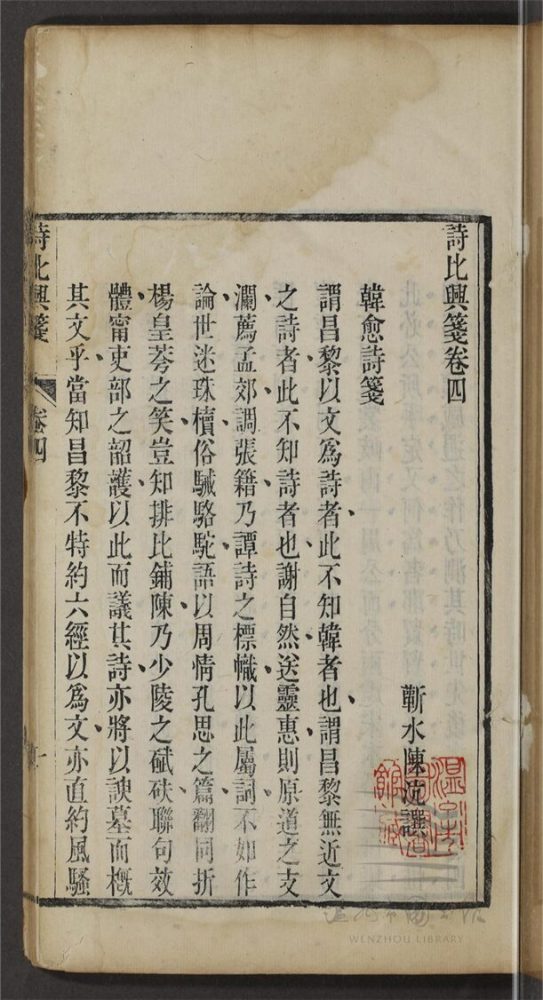 詩比興箋卷四
蘄水陳沆譔
韓愈詩箋
謂昌黎以文爲詩者此不知韓者也謂昌黎無近文
之詩者此不知詩者也謝自然送靈惠則原道之支
瀾薦孟郊調張籍乃譚詩之標幟以此屬詞不如作
論世迷珠櫝俗駴駱駝語以周情孔思之篇翻同折
楊皇荂之笑豈知排比鋪陳乃少陵之碔砆聯句效
體甯吏部之韶頀以此而議其詩亦將以諛墓而概
其文乎當知昌黎不特約六經以爲文亦直約風騷
詩比興箋
卷四
一
溫州市圖書館
WENZHOU LIBRARY